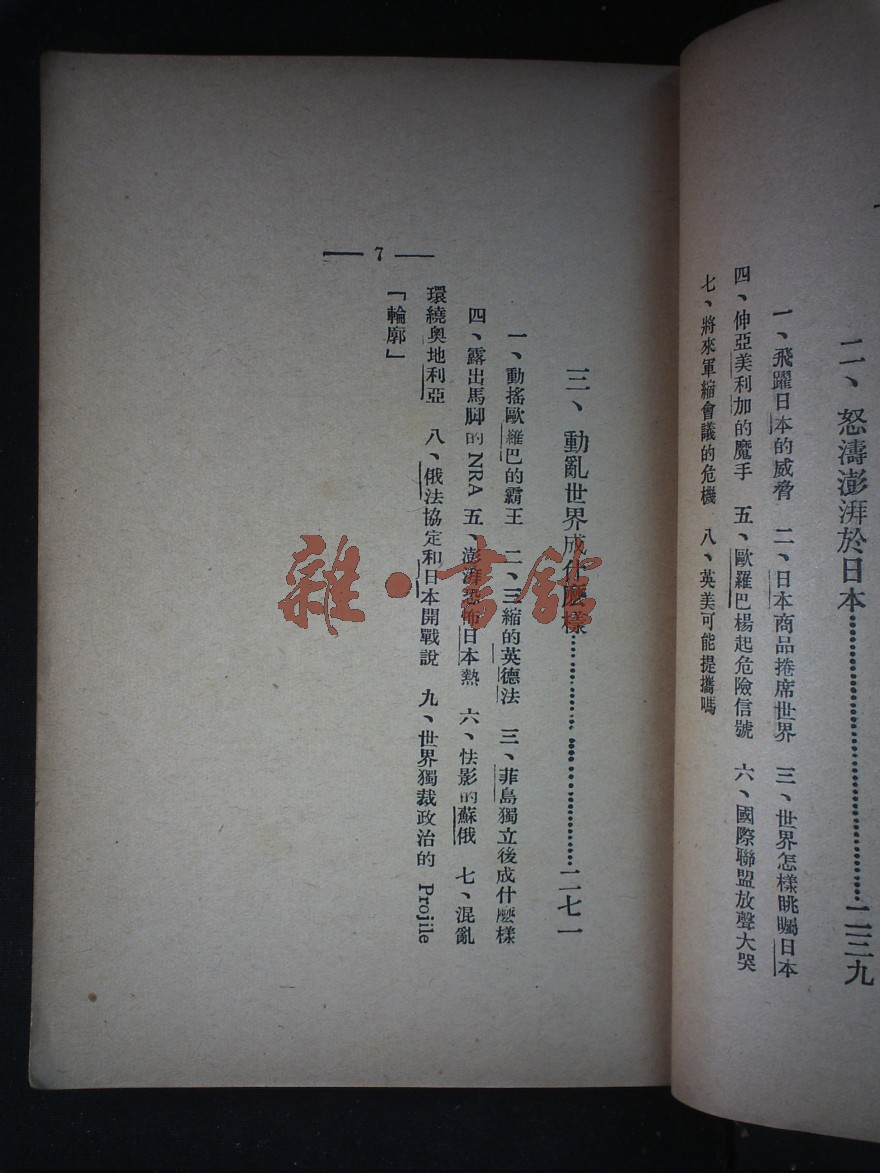 二、怒濤澎湃於日本……………………二三九
一、飛躍日本的威脅　二、日本商品捲席世界　三、世界怎樣眺矚日本
四、伸亞美利加的魔手　五、歐羅巴楊起危險信號　六、國際聯盟放聲大哭
七、將來軍縮會議的危機　八、英美可能提攜嗎
三、動亂世界成什麽樣……………………二七一
一、動搖歐羅巴的霸王　二、三縮的英德法　三、菲島獨立後成什麽樣
四、露出馬脚的 NRA　五、澎湃恐怖日本熱　六、怯影的蘇俄　七、混亂
環繞奧地利亞　八、俄法協定和日本開戰說　九、世界獨裁政治的 Projile
「輪廓」
— 7 —
雜·書館